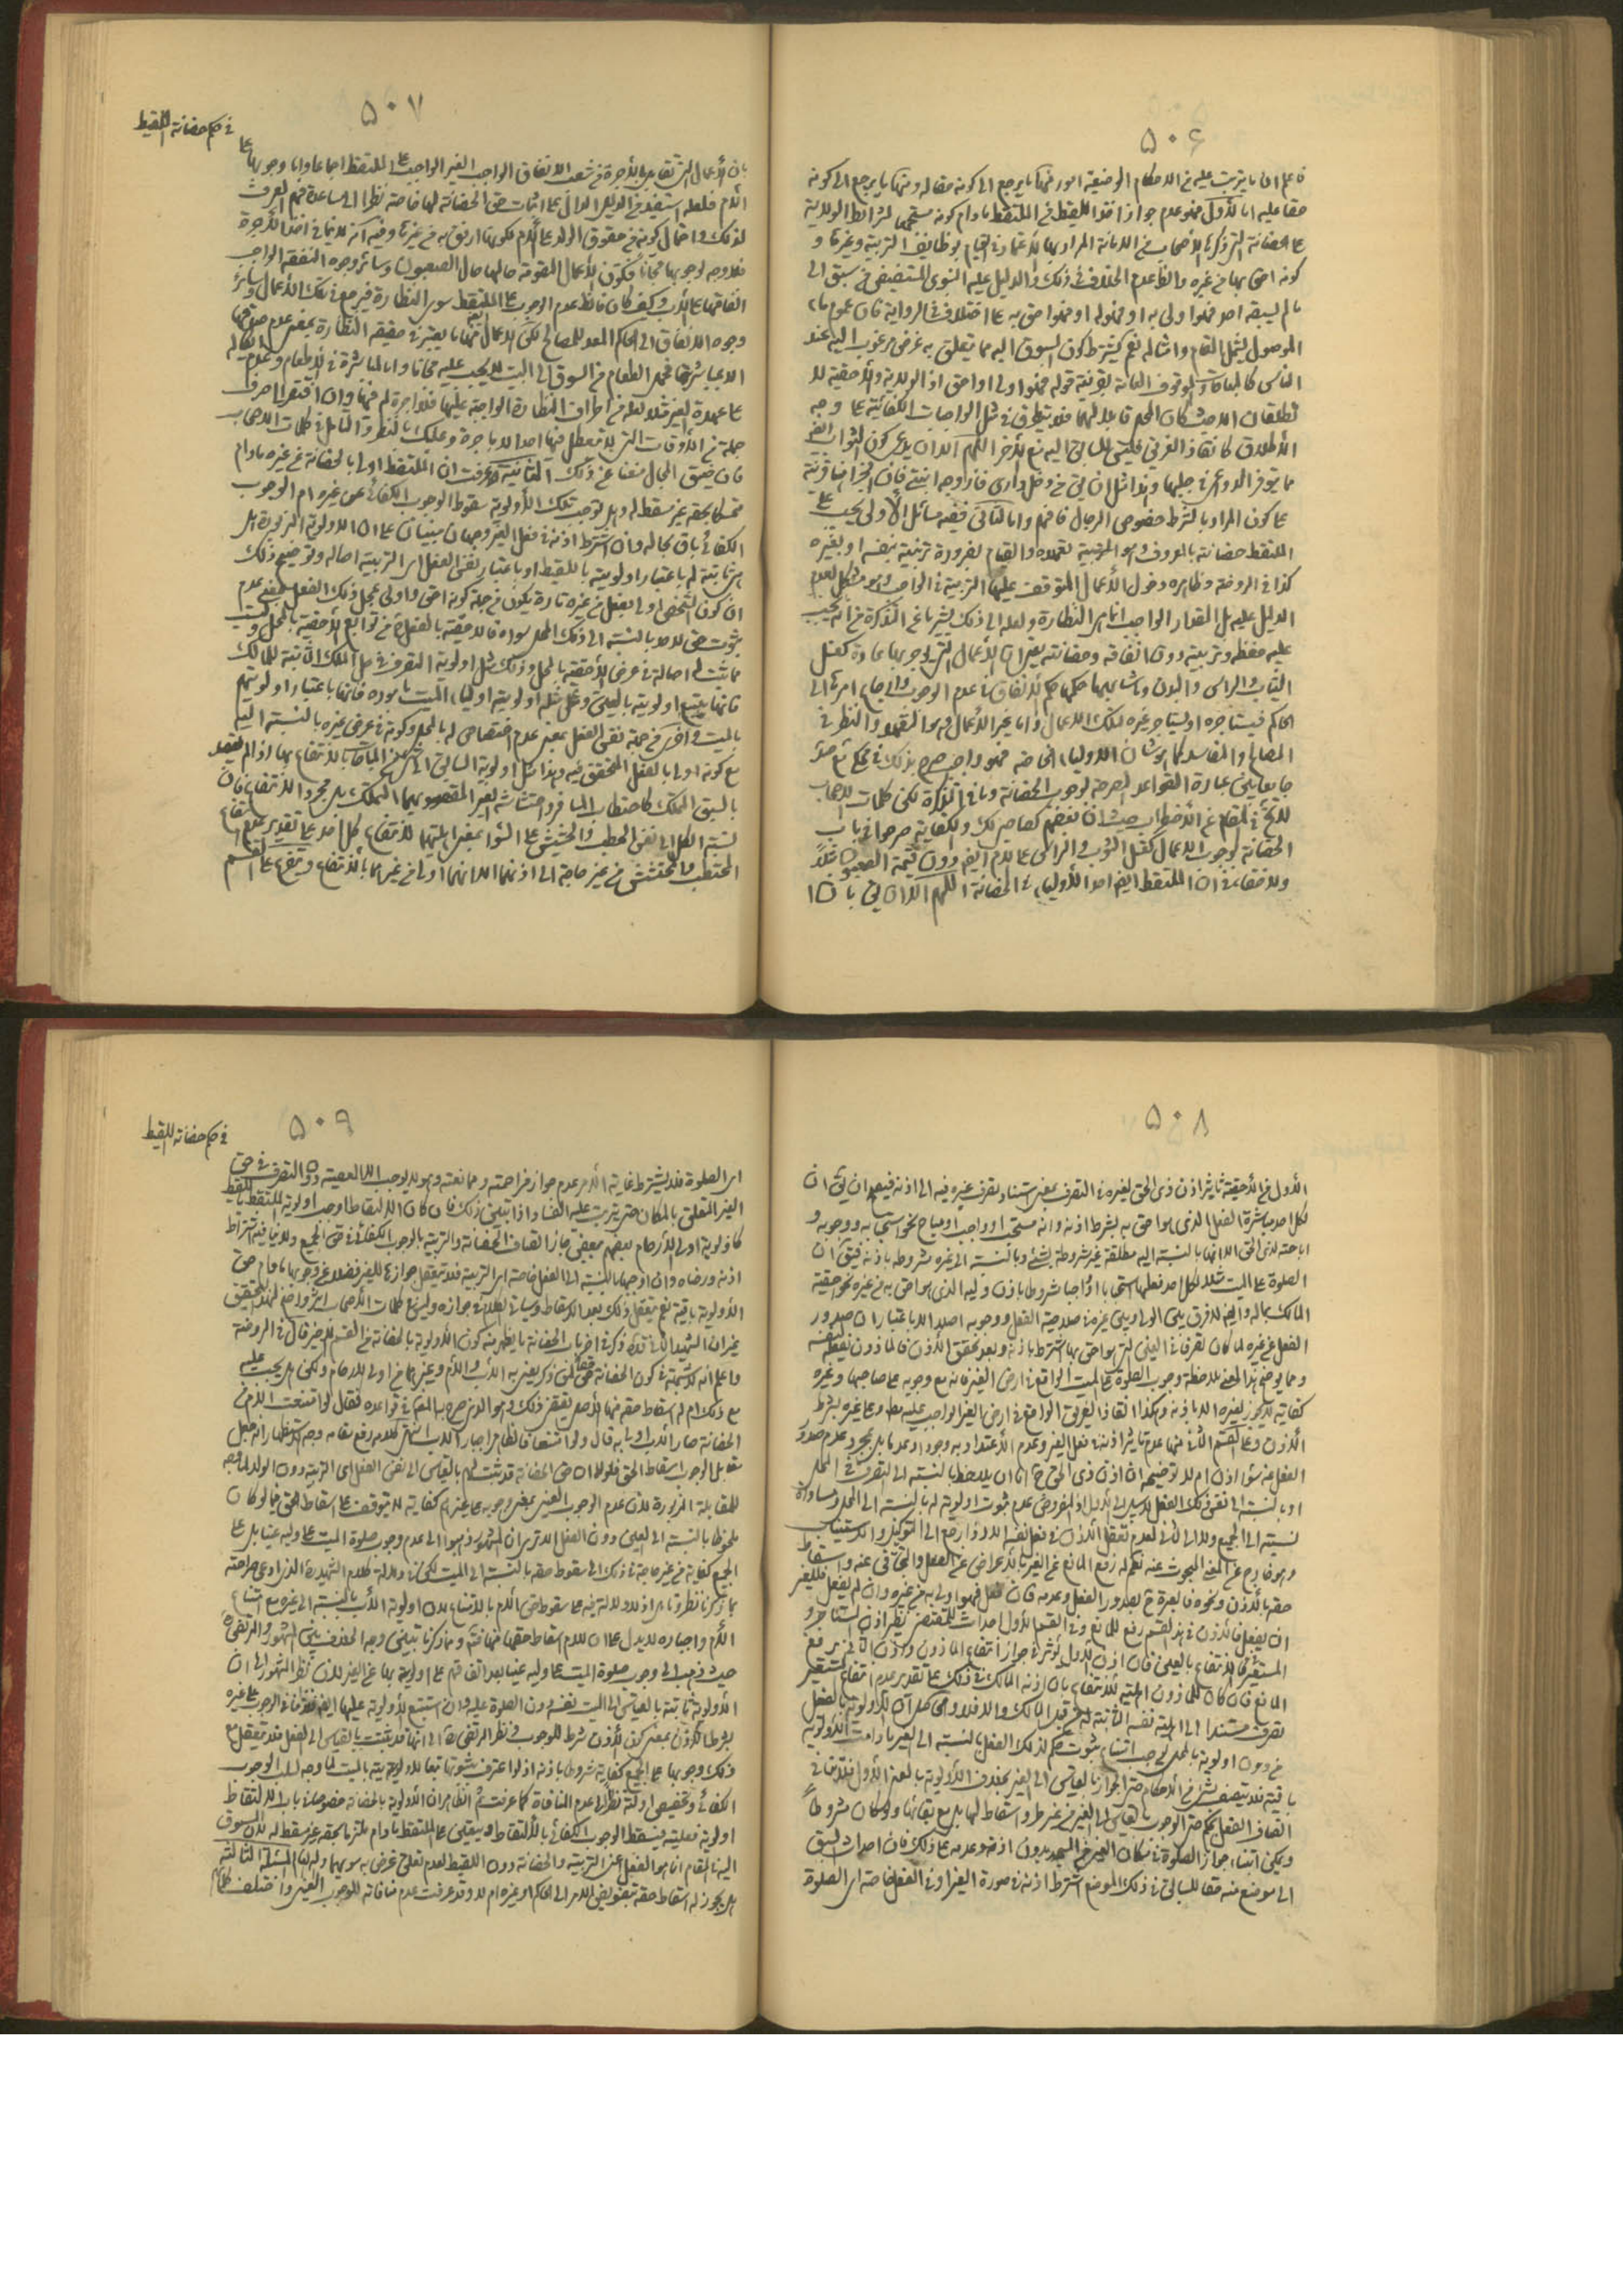 ۵۰۶
فاعلم ان ما يترتب عليه من الاحكام الوضعية امور فمنها ما يرجع الى كونه حقا له ومنها ما يرجع الى كونه
حقا عليه اما الأول فهو عدم جواز اخذ اللقيط من الملتقط مادام كونه مستجمعا لشرائط الولاية
على الحضانة التى ذكرها الأصحاب من الامانة المراد بها الاعتماد فى القيام بوظايف التربية وغيرها و
كونه احق بها من غيره والظ عدم الخلاف فى ذلك والدليل عليه النبوى المستفيض من سبق الى
ما لم يسبقه احد فهو اولى به او فهو له او فهو احق به على اختلاف الرواية فان عموم ما
الموصول يشمل المقام وامثاله نعم يشترط كون المسوق اليه مما يتعلق به غرض مرغوب اليه عند
الناس كالمباحات والوقوف العامة بقرينة قوله فهو اولى او احق اذ الاولوية والأحقية لا
تطلقان الا حيث كان المحل قابلا لهما فلا يتطرق فى مثل الواجبات الكفائية على وجه
الأطلاق كانقاذ الغرقى فليس للسابق اليه منع الآخر اللهم الا ان يدعى كون الثواب ايض
مما يتوفر الدواعى فى جلبها
على كون المراد بالشرط خصوص الرجال فافهم واما الثانى ففيه مسائل الأولى يجب على
الملتقط حضانته بالمعروف وهو التربية لتعهده والقيام بضرورة تربيته بنفسه او بغيره
كذا فى الروضة وظاهره دخول الأعمال المتوقف عليها التربية فى الواجب وهو مشكل لعدم
الدليل عليه بل المقدار الواجب انما هى النظارة ولعله الى ذلك يشير ما عن التذكرة من انه يجب
عليه حفظه وتربيته دون انفاقه وحضانته يعنى ان الأعمال التى يوجر بها عادة كغسل
الثياب والرأس والبدن وما شابهها حكمها حكم الأنفاق فى عدم الوجوب والارجاع امرها الى
الحاكم فيستأجره او يستأجر غيره لتلك الاعمال واما غير الأعمال وهو التعهد والنظر فى
المصالح والمفاسد كما هو شان الاولياء الخاصة فهو واجب صرح بذلك فى محكى مع صد
جامعا بين عبارة القواعد المصرحة بوجوب الحضانة وما فى التذكرة لكن كلمات الاصحاب
للقح فى المقام عن الأضطراب حيث ان بعضهم كصاحبى لك والكفاية صرحوا فى باب
الحضانة بوجوب الاعمال كغسل الثوب والرأس على الأم ايض دون قيمة الصابون مثلا
ولا خفاء فى ان الملتقط ايض احد الأولياء فى الحضانة اللهم الا ان يق بان
۵۰۷
فى حكم حضانة اللقيط
بان الأعمال التى تقابل بالأجرة من شعب الانفاق الواجب الغير الواجب على الملتقط اجماعا واما وجوبها على
الأم فلعله استفيد من الدليل الدال على اثبات حق الحضانة لها خاصة نظرا الى مساعدة فهم العرف
لذلك واحتمال كونه من حقوق الولد على الأم لكونها ارفق به من غيرها وفيه انه لا ينافى اخذ الأجرة
فلا وجه لوجوبها مجانا فتكون الأعمال المتقومة حالها حال الصابون وسائر وجوه النفقة الواجب
انفاقها على الأب وكيف كان فالظ عدم الوجوب على الملتقط سوى النظارة فيرجع فى تلك الأعمال وسائر
وجوه الانفاق الى الحاكم المعد للمصالح لكن الاعمال منها ما يعتبر فى حقيقة النظارة بمعنى عدم صدقها
الا بمباشرتها كحمل الطعام من السوق الى البيت فلا يجب عليه مجانا واما المباشرة فى الأطعام
على عهدة الغير مثلا لعله من اطراف النظارة الواجبة عليها فلا اجرة له فيها وان افتقر الى صرف
جملة من الأوقات التى لا يتعطل فيها احد الا باجرة وعليك بالنظر والتأمل فى كلمات الاصحاب
فان ضيق المجال منعنا عن ذلك الثانية قد عرفت ان الملتقط اولى بالحضانة من غيره مادام
متمسكا بحقه غير مسقط له وهل توجب تلك الأولوية سقوط الوجوب الكفائى عن غيره ام الوجوب
الكفائى باق بحاله وان اشترط اذنه فى فعل الغير وجهان مبنيان على ان الاولوية المزبورة هل
هى ثابتة له باعتبار اولويته باللقيط او باعتبار نفس الفعل اى التربية اصالة وتوضيح ذلك
ان كون الشخص اولى بفعل من غيره تارة يكون من جهة كونه احق واولى بمحل ذلك الفعل بمعنى عدم
ثبوت حق لاحد بالنسبة الى ذلك المحل سواه فالاحقية بالفعل ح من توابع الأحقية بالمحل وليست
مما ثبت له اصالة فى عرض الأحقية بالمحل وذلك مثل اولوية التصرف فى مثل الملك الثابتة للمالك
فانها يتبع اولويته بالعين وعلى مثله اولوية اولياء الميت باموره فانها باعتبار اولويتهم
بالميت واخرى من جهة نفس الفعل بمعنى عدم اختصاص له بالمحل وكونه فى عرض غيره بالنسبة اليه
مع كونه اولى بالفعل المتحقق فيه وهذا مثل اولوية السابق الى شىء من المباحات بالانتفاع بها اذا لم يقصد
بالسبق التملك كاحتطاب المسافر واحتشاشه الغير المقصود بهما التملك بل مجرد الانتفاع فان
نسبة الكل الى نفس الحطب والحشيش على السواء بمعنى
المحتطب والمحتشش من غير حاجة الى اذنهما الا انهما اولى من غيرهما بالانتفاع ويتفرع على القسم
۵۰۸
الأول من الأحقية تأثير اذن ذى الحق لغيره فى التصرف بمعنى استناد تصرف غيره فيه الى اذنه فيصح ان يق ان
لكل احد مباشرة الفعل الذى هو احق به بشرط اذنه وانه مستحب او واجب او مباح نحو استحبابه ووجوبه و
اباحته لذى الحق الا انها بالنسبة اليه مطلقة غير مشروطة بشىء وبالنسبة الى غيره مشروطة باذنه فيق ان
الصلوة على الميت مثلا لكل احد فعلها استحبابا او واجبا مشروطا باذن وليه الذى هو احق به من غيره نحو احقية
المالك بماله وايض لا فرق بين الولى وبين غيره من صلاحية الفعل ووجوبه اصلا الا باعتبار ان صدور
الفعل عن غيره لما كان تصرفا فى العين التى هو احق بها اشترط باذنه وبعد تحقق الأذن فالمأذون يفعله لنفسه
ومما يوضح هذا المعنى ملاحظة وجوب الصلوة على الميت الواقع فى ارض الغير فانه مع وجوبه على صاحبها وغيره
كفاية لا يجوز لغيره الا باذنه وهكذا انقاذ الغريق الواقع فى ارض الغير الواجب عليه مط وعلى غيره بشرط
الأذن وعلى القسم الثانى منها عدم تأثير اذنه فى فعل الغير وعدم الأعتداد به وجودا وعدما بل بمجرد عدم صدور
الفعل منه سواء اذن ام لا توضيحه ان اذن ذى الحق ح اما ان يلاحظ بالنسبة الى التصرف فى المحل
او بالنسبة الى نفس ذلك الفعل لا سبيل الى الأول اذ المفروض عدم ثبوت اولوية له بالنسبة الى المحل ومساواة
نسبته الى الجميع ولا الى الثانى لعدم تعقل الأذن فى فعل نفسه الا اذا رجع الى التوكيل والاستنابة
وهو خارج عن المعنى المبحوث عنه نعم له رفع المانع عن الغير بالأعراض عن الفعل والتجافى عنه واسقاط
حقه بالأذن ونحوه فالعبرة ح بصدور الفعل وعدمه فان فعل فهو اولى به من غيره وان لم يفعل فللغير
ان يفعل فالأذن فى هذا القسم رفع للمانع وفى القسم الأول احداث للمقتضى نظير اذن المستأجر و
المستعير للانتفاع بالعين فان اذن الأول يؤثر فى جواز انتفاع المأذون واذن الثانى يرفع
المانع فان كان للمأذون اهلية للانتفاع بان اذنه المالك فى ذلك على تقدير عدم انتفاع المستعير
تصرف مستندا الى اهلية نفسه الثابتة له من قبل المالك والا فلا ومحصل الكلام ان الاولوية بالفعل
من دون اولوية بالمحل يوجب امتناع ثبوت حكم لذلك الفعل بالنسبة الى الغير مادامت الأولوية
باقية فلا يتصف بشىء من الأحكام حتى الجواز بالقياس الى الغير بخلاف الأولوية بالمعنى الأول فلا تنافى
اتصاف الفعل بحكم حتى الوجوب بالقياس الى الغير من غير شرط واسقاط لها بل مع بقائها ولو كان مشروطا
ويمكن ابتناء جواز الصلوة فى مكان الغير من المسجد بدون اذنه وعدمه على ذلك فان احداث السبق
الى موضع منه حقا للسابق فى ذلك الموضع اشترط اذنه فى صورة الغير او فى الفعل خاصة اى الصلوة
۵۰۹
فى حكم حضانة اللقيط
اى الصلوة فلا يشترط غاية الأمر عدم جواز مزاحمته وممانعته وهو لا يوجب الا المعصية دون التصرف فى حق
الغير المتعلق بالمكان حتى يترتب عليه الفساد اذا تبين ذلك فان كان الالتقاط اوجب اولوية الملتقط باللقيط
كاولوية اولى الأرحام بعضهم ببعض جاز اتصاف الحضانة والتربية بالوجوب الكفائى فى حق الجميع ولا ينافيه اشتراط
اذنه ورضاه وان اوجبها بالنسبة الى الفعل خاصة اى التربية فلا يتعقل جوازها للغير فضلا عن وجوبها مادام حق
الأولوية باقية نعم يتعقل ذلك بعد الاسقاط وسيأتى الكلام فى جوازه
غير ان الشهيد الثانى قده ذكر فى اخر باب الحضانة ما يظهر منه كون الأولوية بالحضانة من القسم الاخير قال فى الروضة
واعلم انه لا شبهة فى كون الحضانة حقا لمن ذكر يعنى به الأب والأم وغيرهما من اولى الارحام ولكن هل يجب عليه
مع ذلك ام له اسقاط حقه منها الأصل يقتضى ذلك وهو الذى صرح به المص فى قواعده فقال لو امتنعت الام من
الحضانة صار الأب اولى به قال ولو امتنعا فالظاهر اجبار الاب انتهى كلامه رفع مقامه وجه الاستظهار انه جعل
مقابل الوجوب اسقاط الحق فلولا ان حق الحضانة قد ثبتت لهم بالقياس الى نفس الفعل اى التربية دون الولد لما وجه
للمقابلة المزبورة لان عدم الوجوب العينى بمعنى وجوبه على غيرهم كفاية لا يتوقف على اسقاط الحق فيما لو كان
ملحوظا بالنسبة الى العين دون الفعل الا ترى ان المشهور ذهبوا الى عدم وجوب صلوة الميت على وليه عينا بل على
الجميع كفاية من غير حاجة فى ذلك الى سقوط حقه بالنسبة الى الميت لكن فى دلالة كلام الشهيد ره الذى ادعى صراحته
بما ذكرنا نظر وتأمل اذ لا دلالة فيه على سقوط حق الأم بالامتناع بدون اولوية الأب بالنسبة الى غيره مع امتناع
الأم واجباره لا يدل على ان للام اسقاط حقها منها فتم ومما ذكرنا تبين وجه الخلاف بين المشهور والمرتضى ره
حيث ذهب الى وجوب صلوة الميت على وليه عينا بعد اتفاقهم على اولويته بها عن الغير لان نظر المشهور الى ان
الأولوية ثابتة بالقياس الى الميت نفسه دون الصلوة عليه وان استتبع الأولوية عليها ايض فقالوا فى الوجوب على غيره
بشرط الأذن بمعنى كون الأذن شرطا للوجوب ونظر المرتضى ره الى انها قد ثبتت بالقياس الى الفعل فلا يتعقل مع
ذلك وجوبها على الجميع كفاية مشروطا باذنه اذ لو اعترف بثبوتها تبعا للاولوية بالميت لما وجه لسلب الوجوب
الكفائى وتخصيص ادلته نظرا الى عدم المنافاة كما عرفت ثم الظاهر ان الأولوية بالحضانة خصوصا فى باب الالتقاط
اولوية فعلية فيسقط الوجوب الكفائى بالالتقاط ويتعين على الملتقط مادام ملتزما بحقه غير مسقط له لان المسوق
اليه فى المقام انما هو الفعل اعنى التربية والحضانة دون اللقيط لعدم تعلق غرض به سويهما والله العالم المسئلة الثالثة
هل يجوز له اسقاط حقه بتفويض الامر الى الحاكم او غيره ام لا وقد عرفت عدم منافاته للوجوب العينى واختلف كلام